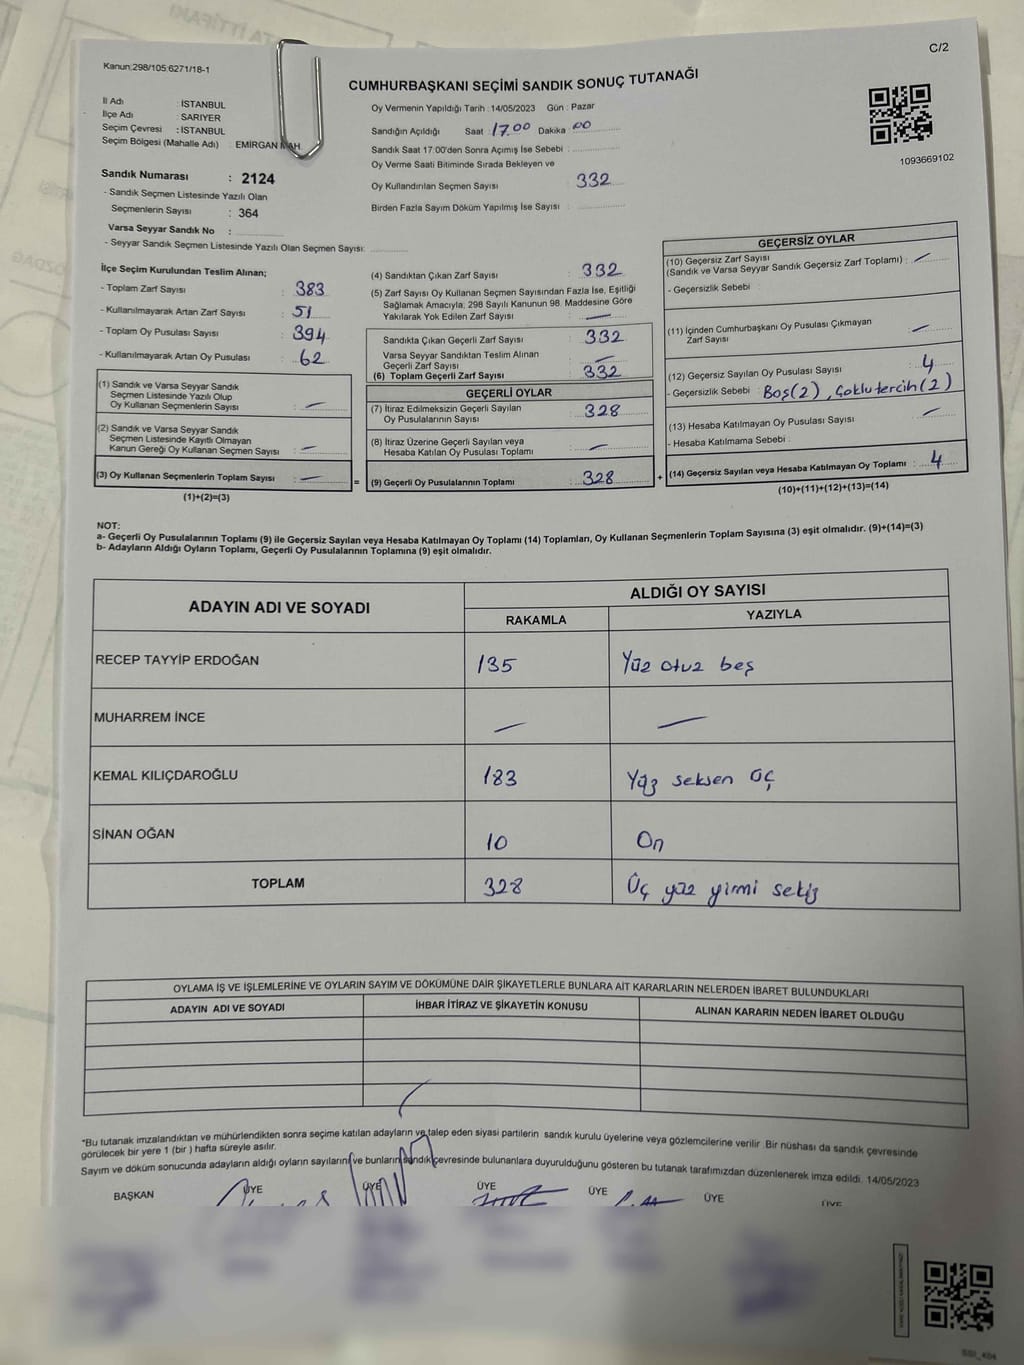 C/2
Kanun:298/105:6271/18-1
CUMHURBAŞKANI SEÇİMİ SANDIK SONUÇ TUTANAĞI
İl Adı : İSTANBUL
İlçe Adı : SARIYER
Seçim Çevresi : İSTANBUL
Seçim Bölgesi (Mahalle Adı) : EMİRGAN MAH
Oy Vermenin Yapıldığı Tarih : 14/05/2023 Gün : Pazar
Sandığın Açıldığı Saat : 17.00 Dakika : 00
Sandık Saat 17:00'den Sonra Açımış İse Sebebi :
Oy Verme Saati Bitiminde Sırada Bekleyen ve
Oy Kullandırılan Seçmen Sayısı : 332
Birden Fazla Sayım Döküm Yapılmış İse Sayısı :
1093669102
Sandık Numarası : 2124
- Sandık Seçmen Listesinde Yazılı Olan
Seçmenlerin Sayısı : 364
Varsa Seyyar Sandık No :
- Seyyar Sandık Seçmen Listesinde Yazılı Olan Seçmen Sayısı:
İlçe Seçim Kurulundan Teslim Alınan;
- Toplam Zarf Sayısı : 383
- Kullanılmayarak Artan Zarf Sayısı : 51
- Toplam Oy Pusulası Sayısı : 394
- Kullanılmayarak Artan Oy Pusulası : 62
(1) Sandık ve Varsa Seyyar Sandık
Seçmen Listesinde Yazılı Olup
Oy Kullanan Seçmenlerin Sayısı : —
(2) Sandık ve Varsa Seyyar Sandık
Seçmen Listesinde Kayıtlı Olmayan
Kanun Gereği Oy Kullanan Seçmen Sayısı : —
(3) Oy Kullanan Seçmenlerin Toplam Sayısı : —
(1)+(2)=(3)
=
(4) Sandıktan Çıkan Zarf Sayısı : 332
(5) Zarf Sayısı Oy Kullanan Seçmen Sayısından Fazla İse, Eşitliği
Sağlamak Amacıyla, 298 Sayılı Kanunun 98. Maddesine Göre
Yakılarak Yok Edilen Zarf Sayısı : —
Sandıkta Çıkan Geçerli Zarf Sayısı : 332
Varsa Seyyar Sandıktan Teslim Alınan
Geçerli Zarf Sayısı : —
(6) Toplam Geçerli Zarf Sayısı : 332
GEÇERLİ OYLAR
(7) İtiraz Edilmeksizin Geçerli Sayılan
Oy Pusulalarının Sayısı : 328
(8) İtiraz Üzerine Geçerli Sayılan veya
Hesaba Katılan Oy Pusulası Toplamı : —
(9) Geçerli Oy Pusulalarının Toplamı : 328
+
GEÇERSİZ OYLAR
(10) Geçersiz Zarf Sayısı
(Sandık ve Varsa Seyyar Sandık Geçersiz Zarf Toplamı) : —
- Geçersizlik Sebebi :
(11) İçinden Cumhurbaşkanı Oy Pusulası Çıkmayan
Zarf Sayısı : —
(12) Geçersiz Sayılan Oy Pusulası Sayısı : 4
- Geçersizlik Sebebi : Boş(2), Çoklu tercih(2)
(13) Hesaba Katılmayan Oy Pusulası Sayısı : —
- Hesaba Katılmama Sebebi :
(14) Geçersiz Sayılan veya Hesaba Katılmayan Oy Toplamı : 4
(10)+(11)+(12)+(13)=(14)
NOT:
a- Geçerli Oy Pusulalarının Toplamı (9) ile Geçersiz Sayılan veya Hesaba Katılmayan Oy Toplamı (14) Toplamları, Oy Kullanan Seçmenlerin Toplam Sayısına (3) eşit olmalıdır. (9)+(14)=(3)
b- Adayların Aldığı Oyların Toplamı, Geçerli Oy Pusulalarının Toplamına (9) eşit olmalıdır.
ADAYIN ADI VE SOYADI ALDIĞI OY SAYISI
RAKAMLA YAZIYLA
RECEP TAYYİP ERDOĞAN 135 Yüz otuz beş
MUHARREM İNCE — —
KEMAL KILIÇDAROĞLU 183 Yüz seksen üç
SİNAN OĞAN 10 On
TOPLAM 328 Üç yüz yirmi sekiz
OYLAMA İŞ VE İŞLEMLERİNE VE OYLARIN SAYIM VE DÖKÜMÜNE DAİR ŞİKAYETLERLE BUNLARA AİT KARARLARIN NELERDEN İBARET BULUNDUKLARI
ADAYIN ADI VE SOYADI İHBAR İTİRAZ VE ŞİKAYETİN KONUSU ALINAN KARARIN NEDEN İBARET OLDUĞU
*Bu tutanak imzalandıktan ve mühürlendikten sonra seçime katılan adayların ve talep eden siyasi partilerin sandık kurulu üyelerine veya gözlemcilerine verilir. Bir nüshası da sandık çevresinde
görülecek bir yere 1 (bir ) hafta süreyle asılır.
Sayım ve döküm sonucunda adayların aldığı oyların sayılarını ve bunların sandık çevresinde bulunanlara duyurulduğunu gösteren bu tutanak tarafımızdan düzenlenerek imza edildi. 14/05/2023
BAŞKAN ÜYE ÜYE ÜYE ÜYE ÜYE ÜYE